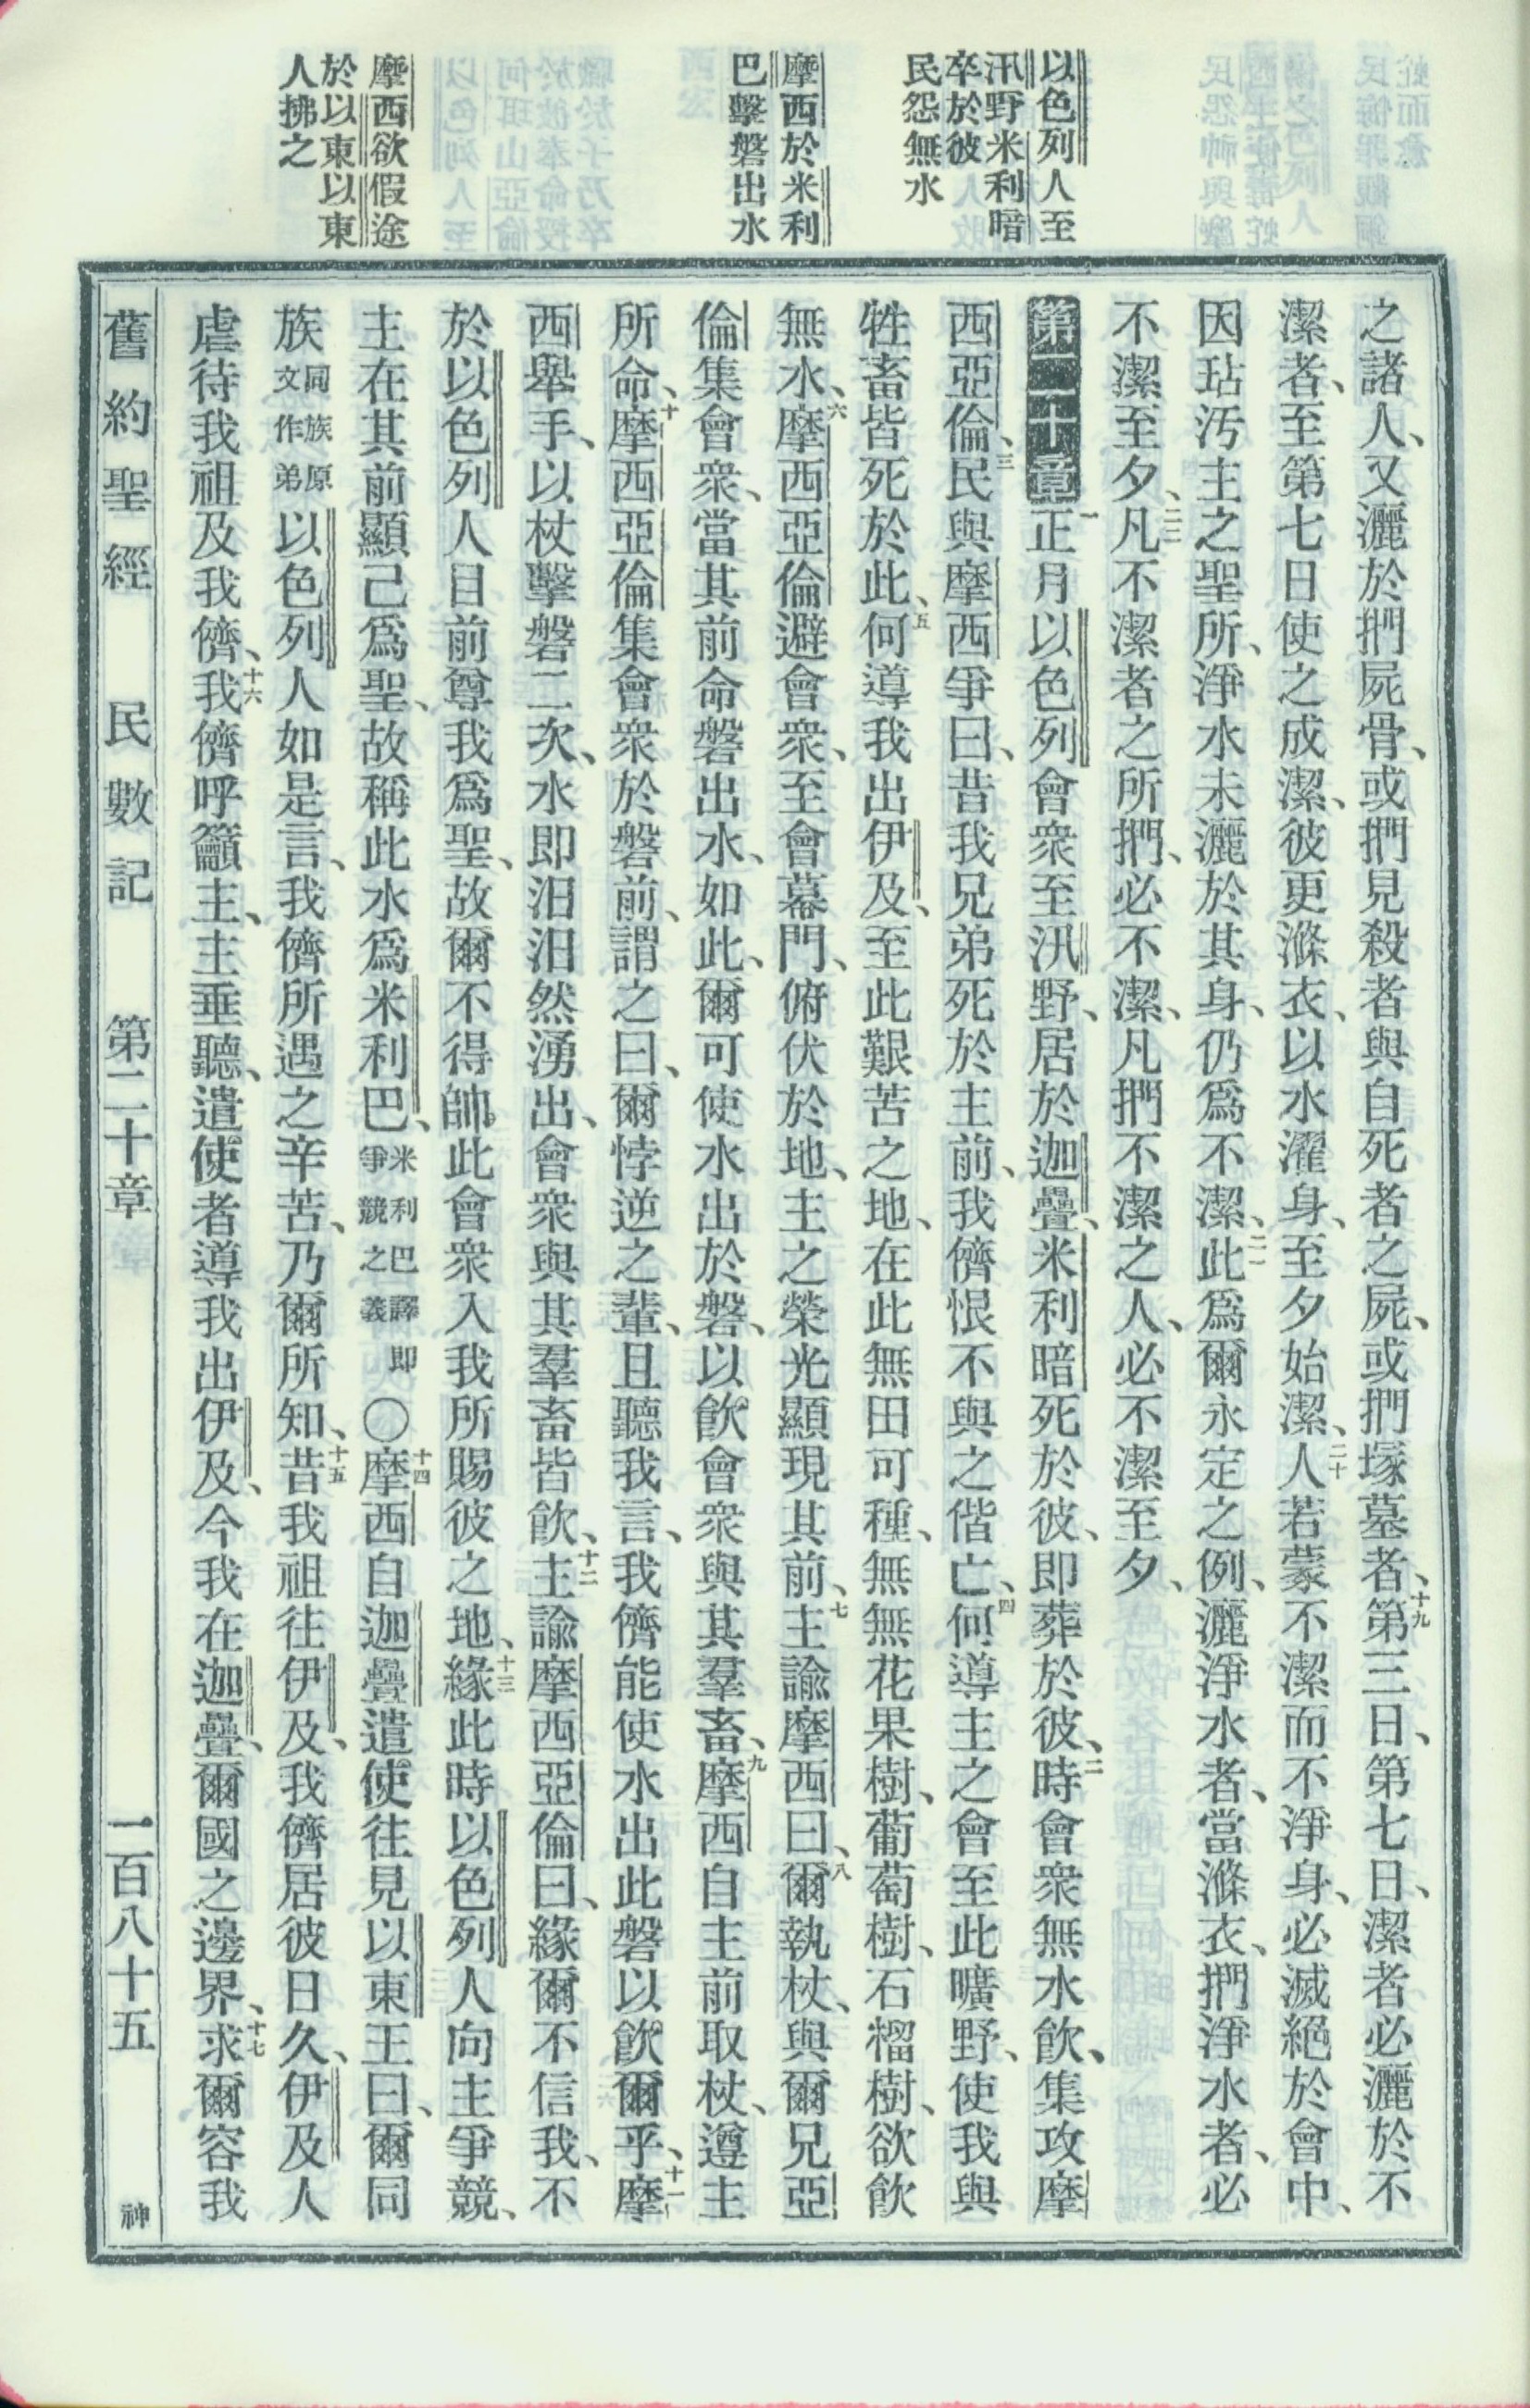 以色列人至
汛野米利暗
卒於彼
民怨無水
摩西於米利
巴擊磐出水
摩西欲假途
於以東以東
人拂之
之諸人、又灑於捫屍骨、或捫見殺者與自死者之屍、或捫塚墓者、十九第三日、第七日、潔者必灑於不
潔者、至第七日使之成潔、彼更滌衣、以水濯身、至夕始潔、二十人若蒙不潔而不淨身、必滅絕於會中、
因玷污主之聖所、淨水未灑於其身、仍爲不潔、二一此爲爾永定之例、灑淨水者、當滌衣、捫淨水者、必
不潔至夕、二二凡不潔者之所捫、必不潔、凡捫不潔之人、必不潔至夕、
第二十章 一正月以色列會衆至汛野、居於迦疊、米利暗死於彼、即葬於彼、二時會衆無水飲、集攻摩
西亞倫、三民與摩西爭曰、昔我兄弟死於主前、我儕恨不與之偕亡、四何導主之會至此曠野、使我與
牲畜皆死於此、五何導我出伊及、至此艱苦之地、在此無田可種、無無花果樹、葡萄樹、石榴樹、欲飲
無水、六摩西亞倫避會衆、至會幕門、俯伏於地、主之榮光顯現其前、七主諭摩西曰、八爾執杖、與爾兄亞
倫集會衆、當其前命磐出水、如此、爾可使水出於磐、以飲會衆與其羣畜、九摩西自主前取杖、遵主
所命、十摩西亞倫集會衆於磐前、謂之曰、爾悖逆之輩、且聽我言、我儕能使水出此磐以飲爾乎、十一摩
西舉手、以杖擊磐二次、水即汩汩然湧出、會衆與其羣畜皆飲、十二主諭摩西亞倫曰、緣爾不信我、不
於以色列人目前尊我爲聖、故爾不得帥此會衆入我所賜彼之地、十三緣此時以色列人向主爭競、
主在其前顯己爲聖、故稱此水爲米利巴、米利巴譯即爭競之義〇十四摩西自迦疊遣使往見以東王曰、爾同
族同族原文作弟以色列人如是言、我儕所遇之辛苦、乃爾所知、十五昔我祖往伊及、我儕居彼日久、伊及人
虐待我祖及我儕、十六我儕呼籲主、主垂聽、遣使者導我出伊及、今我在迦疊、爾國之邊界、十七求爾容我
舊約聖經 民數記 第二十章 一百八十五 神